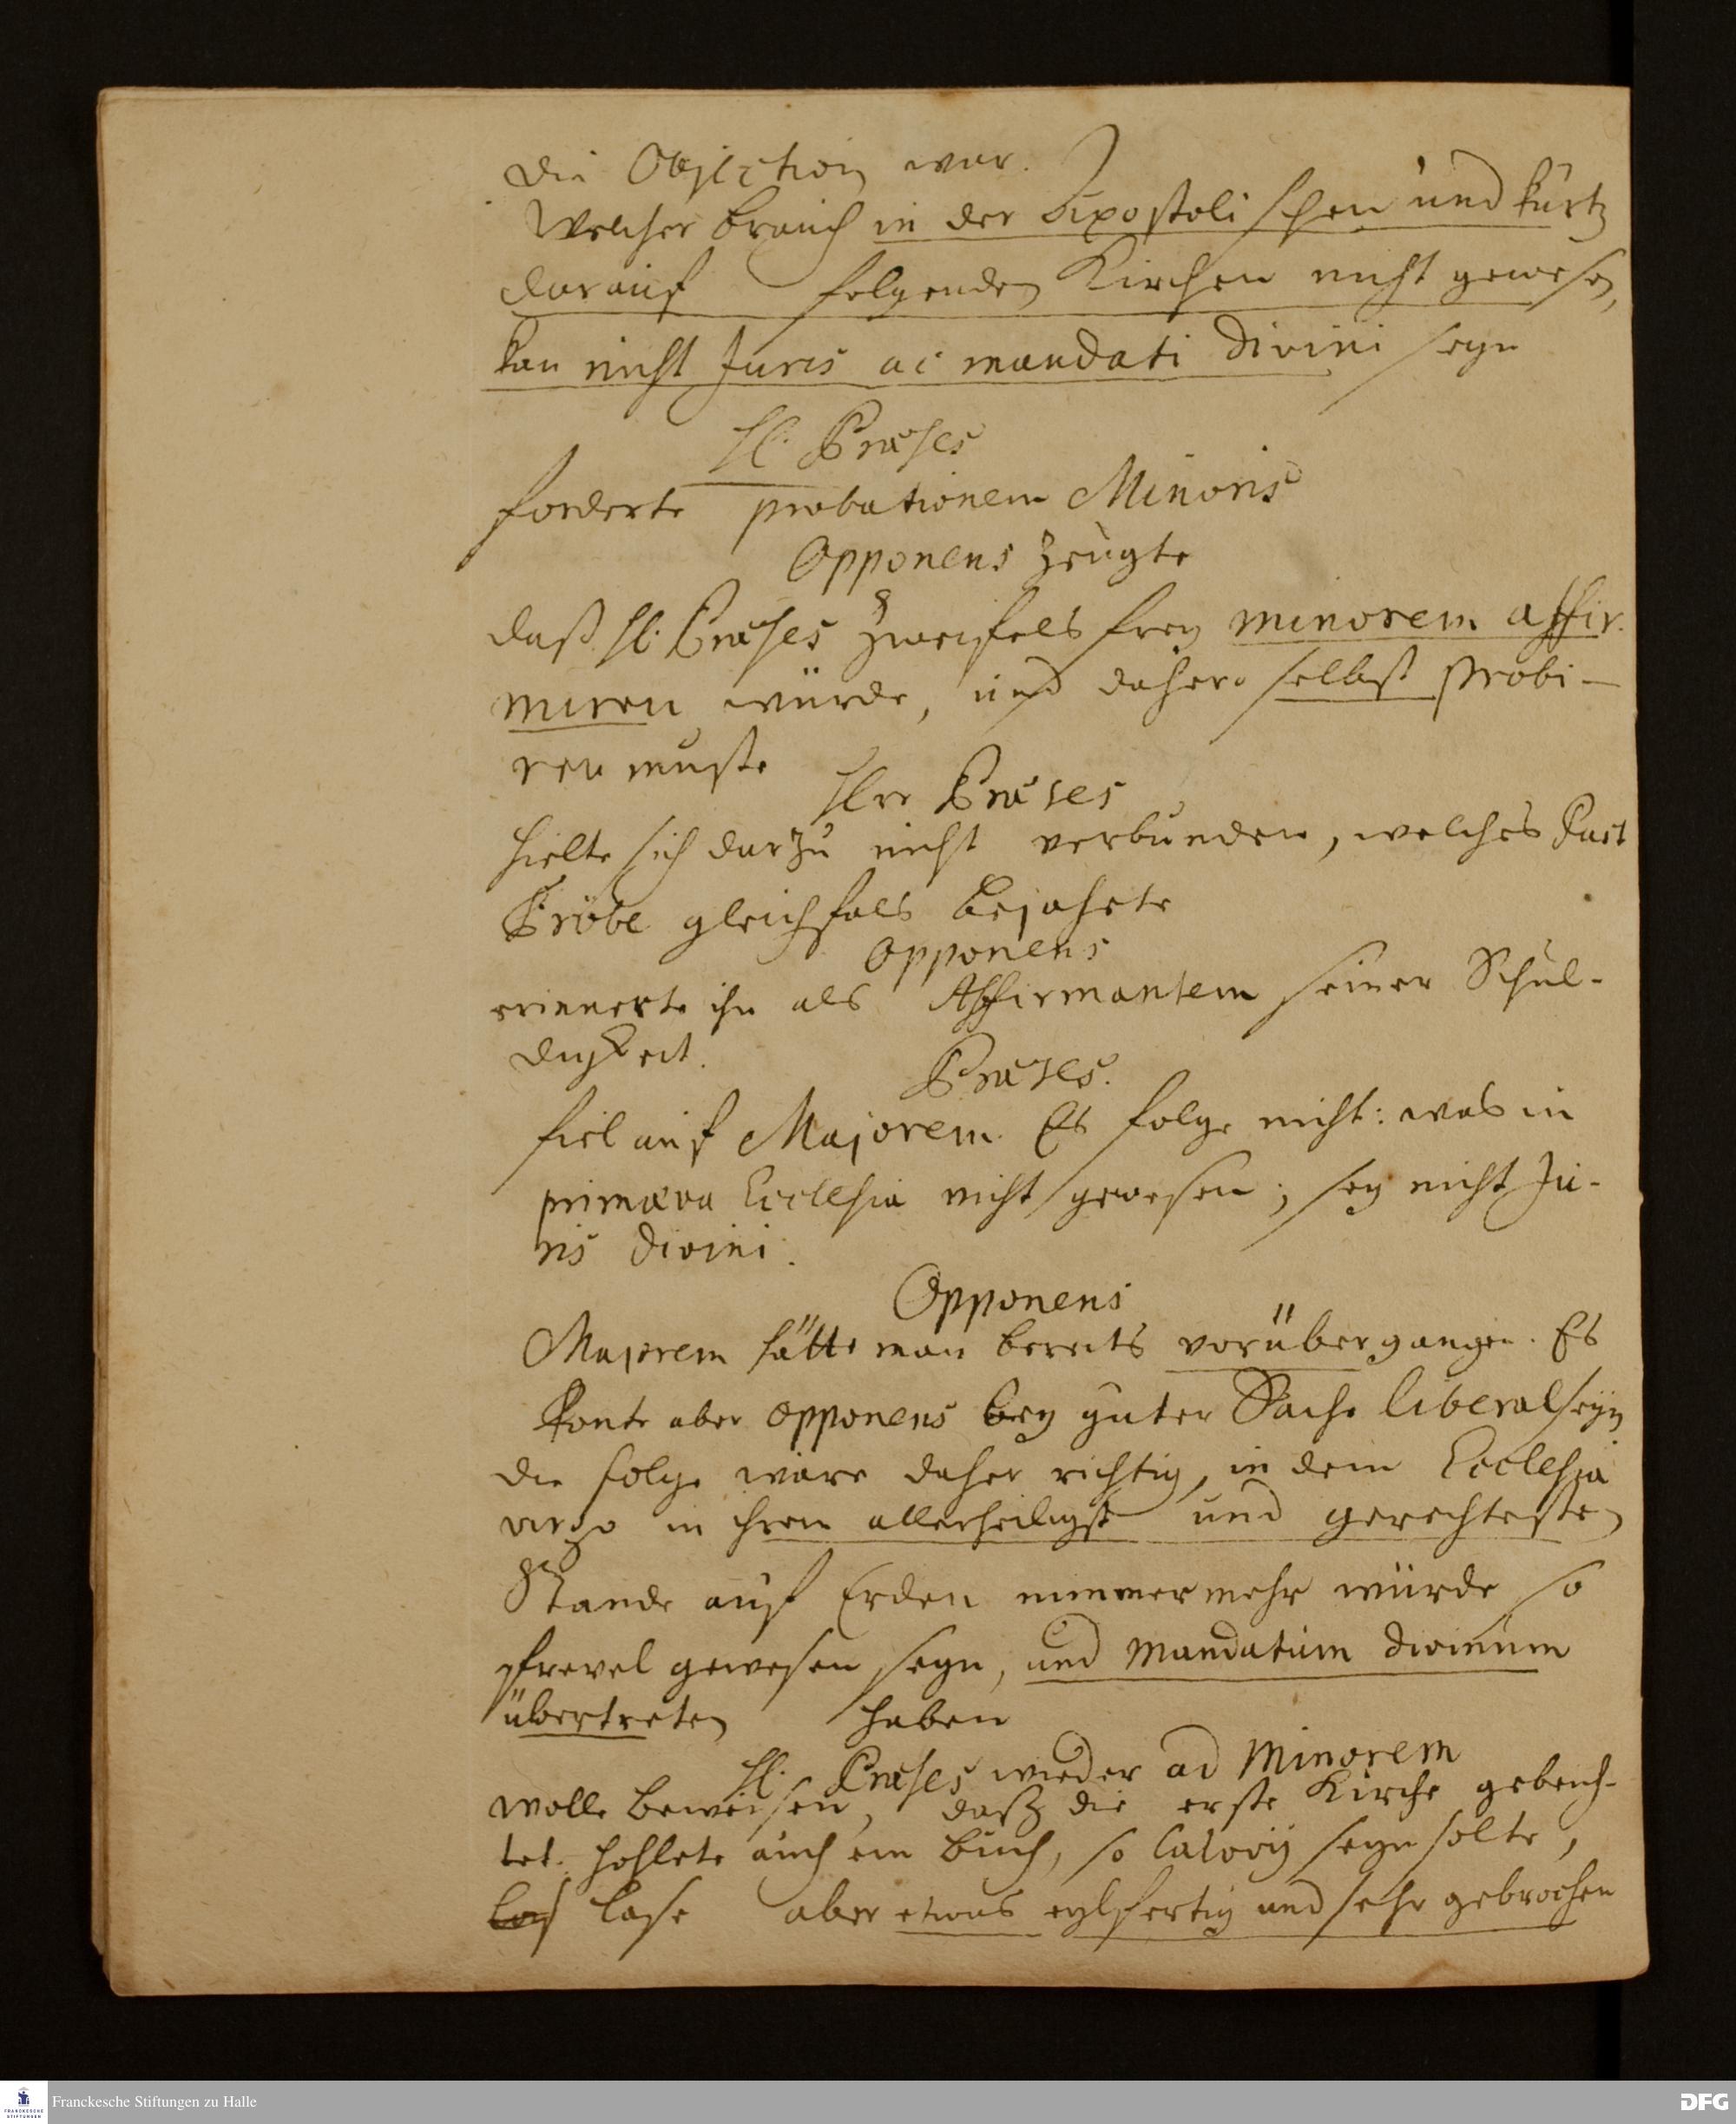 Die Objection war.
Welcher Brauch in der Apostolischen und kurtz
darauf folgenden Kirchen nicht gewesen,
kan nicht Juris ac mandati Divini seyn
H. Præses
forderte probationem Minoris
Opponens zeugte
daß H. Præses Zweifels frey minorem affir-
miren würde, und dahero selbst probi-
ren muste
Herr Præses
hielte sich darzu nicht verbunden, welches Past
Gröbe gleichfals bejahete
Opponens
erinnerte ihn als Affirmantem seiner Schul-
digkeit.
Præses.
fiel auf Majorem. Es folge nicht: was in
primæva Ecclesia nicht gewesen, sey nicht Ju-
ris Divini.
Opponens
Majorem hätte man bereits vorübergangen. Es
konte aber Opponens bey guter Sache liberal seyn
die folge wäre daher richtig, in dem Ecclesia
virgo in ihrem allerheiligst und gerechtesten
Stande auf Erden nimmermehr würde so
frevel gewesen seyn, und Mandatum divinum
übertreten haben
H. Præses wieder ad Minorem
wolle beweisen, daß die erste Kirche gebeich-
tet. hohlete auch ein Buch, so Calovij seyn solte,
lase aber etwas eylfertig und sehr gebrochen
Franckesche Stiftungen zu Halle
FRANCKESCHE
STIFTUNGEN
DFG